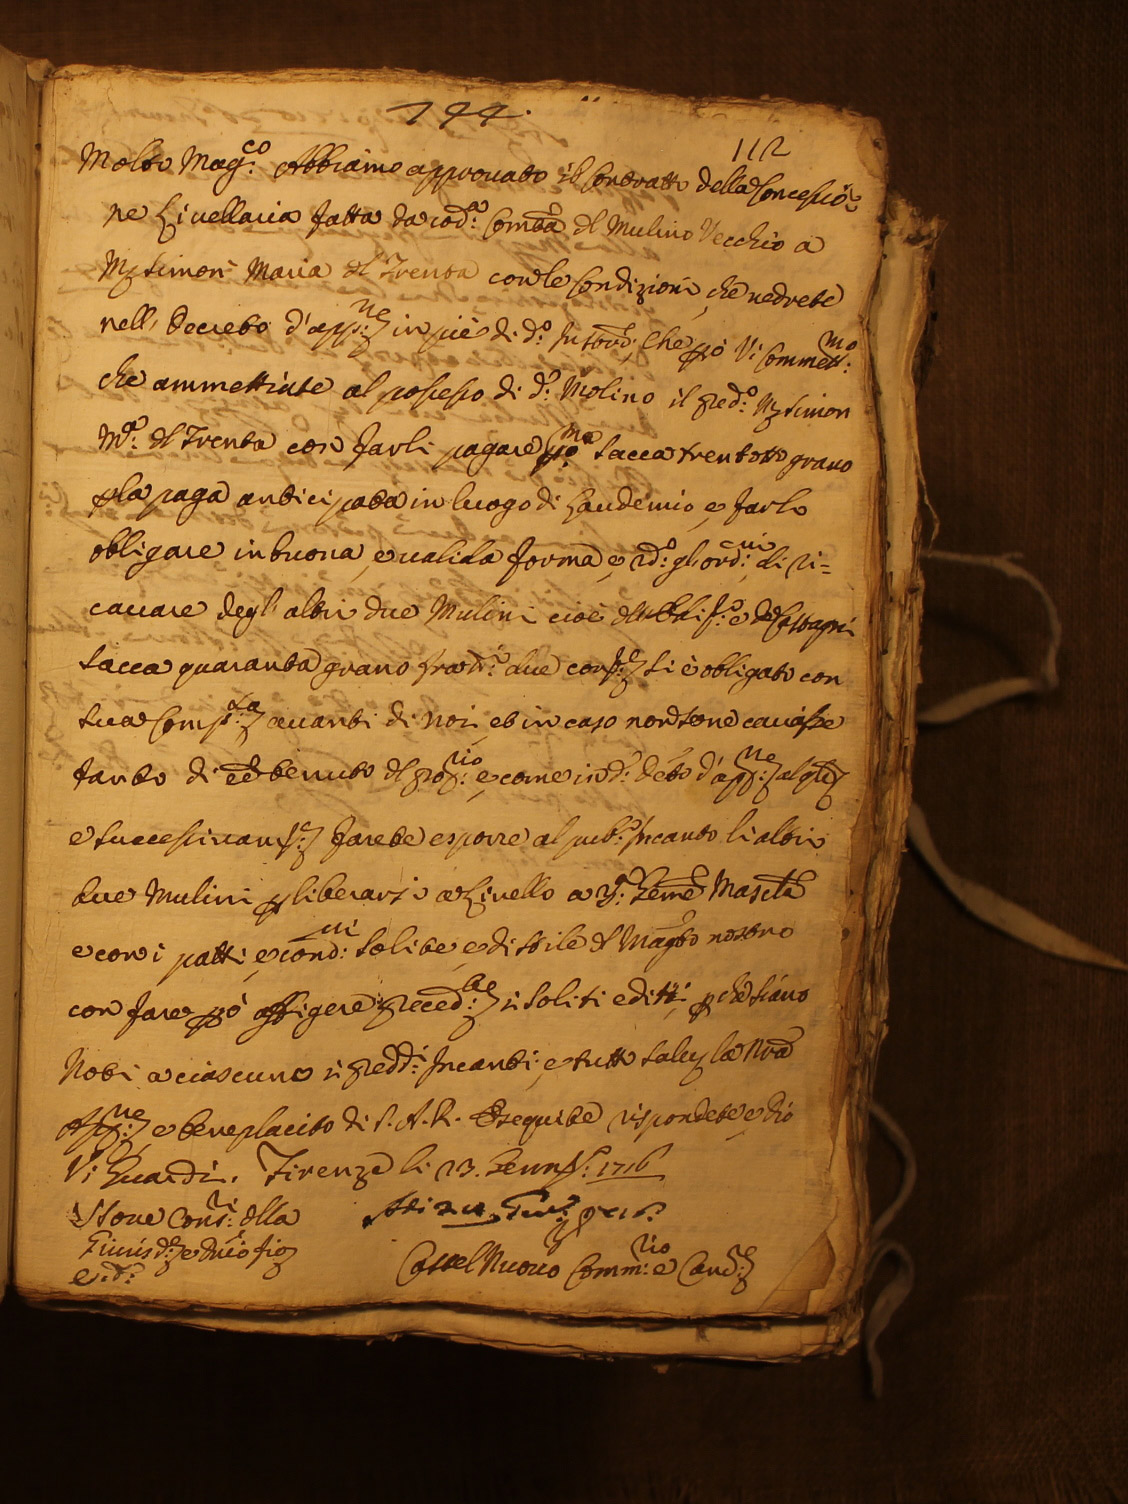 144.
112
Molto Mag.co Abbiamo approvato il Contratto della Concessio=
ne Livellaria fatta da cod.a Com.tà del Mulino Vecchio a
Simon Maria del Trenta con le Condizioni, che vedrete
nell, Decreto d'app.ne in piè di d.o che però Vi Commett.mo
che ammettiate al possesso di d.o Molino il pred.o Simon
M.a del Trenta con farli pagare p.ma sacca trentotto grano
p la paga anticipata in luogo di Laudemio, e farlo
obligare in buona, e valida forma, e gl'ord.ni di ri=
cavare degl'altri due Mulini cioè
sacca quaranta grano si è obligato con
sua avanti di Noi, et in caso non se ne cavasse
tanto di e come in d.o d'app.ne
e successivam.te farete esporre al pub.o Incanto li altri
due Mulini p liberarsi a Livello a
e con i patti, e cond.ni solite, e di stile del Mag.to nostro
con fare però affigere i soliti editti, p che siano
Noti a ciascuno i predd.i Incanti, e tutto salva la Nra
App.ne e beneplacito di S. A. R. Eseguite rispondete, e Dio
Vi Guardi. Firenze li 23. Genn.o 1716
Cons.ri della

Castel Nuovo Comm.rio e Canc.re